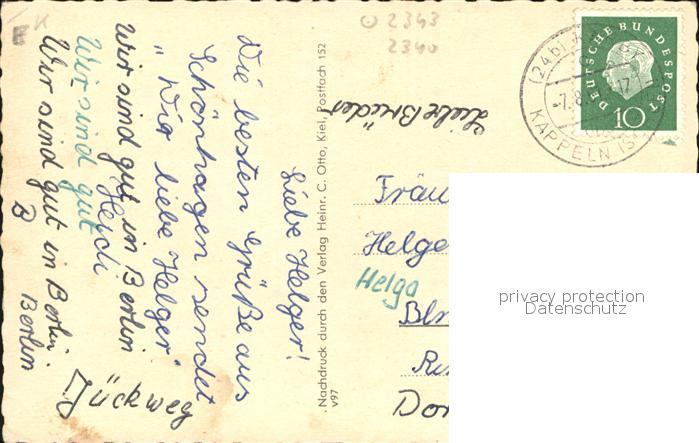 2343
2340
DEUTSCHE BUNDESPOST
10
(24b)
KAPPELN
Liebe Helger!
Die besten Grüße aus
Schönhagen sendet
"Wir liebe Helger"
Wir sind gut in Berlin
Wir sind gut
Wir sind gut in Berlin.
B
Berlin
Nachdruck durch den Verlag Heinr. C. Otto, Kiel, Postfach 152
V97
Liebe
Fräu
Helge
Helga
privacy protection
Datenschutz